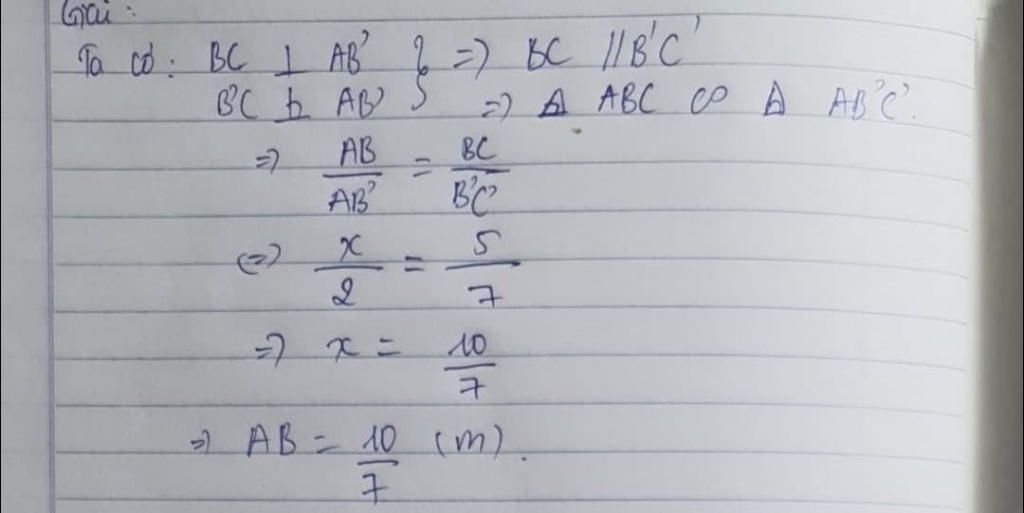 Giải:
Ta có: BC ⊥ AB' } => BC // B'C'
B'C ⊥ AB' } => Δ ABC ∽ Δ AB'C'.
=> AB/AB' = BC/B'C'
<=> x/2 = 5/7
=> x = 10/7
=> AB = 10/7 (m).